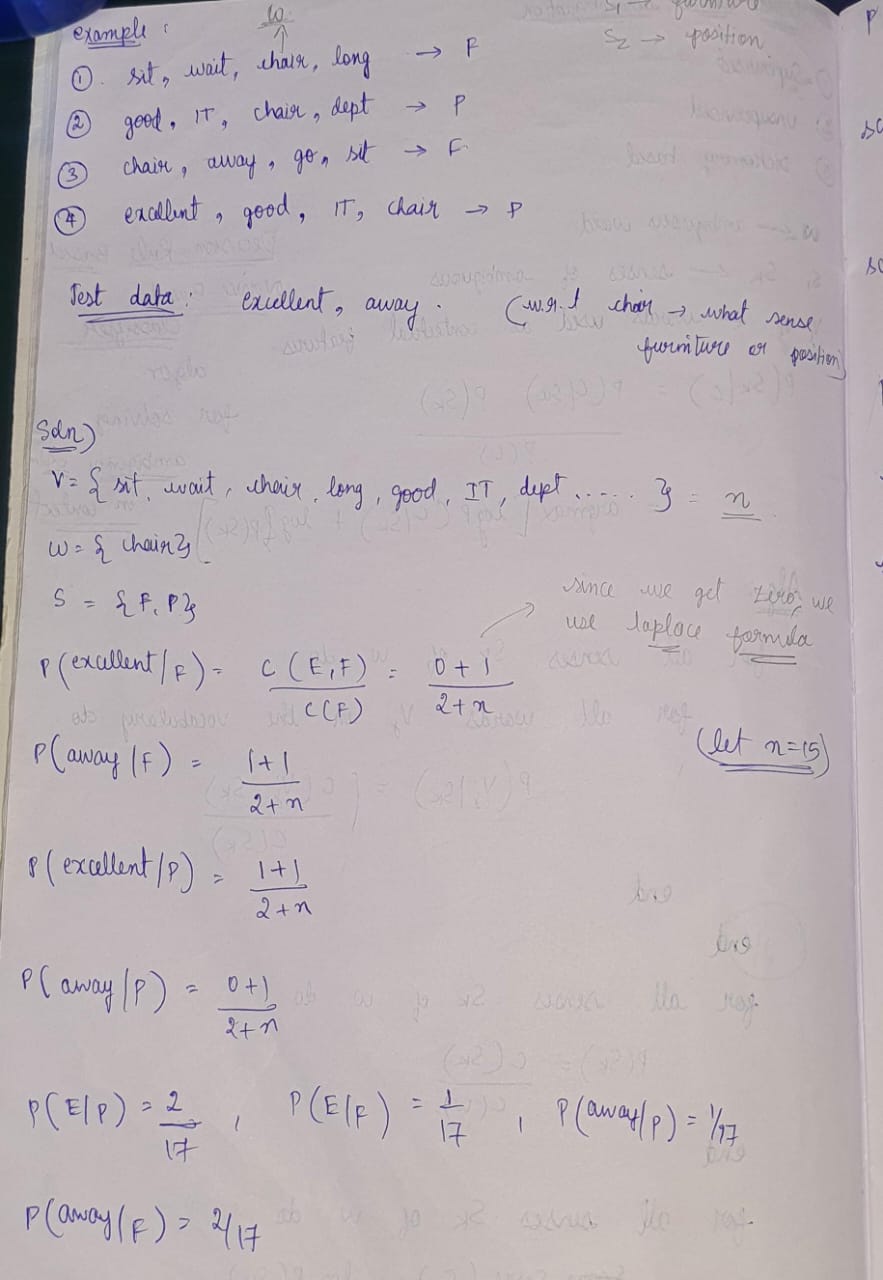 example :
w
S₁ → furniture
S₂ → position
① sit, wait, chair, long → F
② good, IT, chair, dept → P
③ chair, away, go, sit → F
④ excellent, good, IT, chair → P
Test data : excellent, away. (w.r.t chair → what sense
furniture or position)
Soln)
V = { sit, wait, chair, long, good, IT, dept ..... } = n
w = { chair }
S = { F, P }
since we get zero, we
use laplace formula
P(excellent/F) = C(E,F)/C(F) = 0+1/2+n
(let n=15)
P(away/F) = 1+1/2+n
P(excellent/P) = 1+1/2+n
P(away/P) = 0+1/2+n
P(E/P) = 2/17, P(E/F) = 1/17, P(away/P) = 1/17
P(away/F) = 2/17